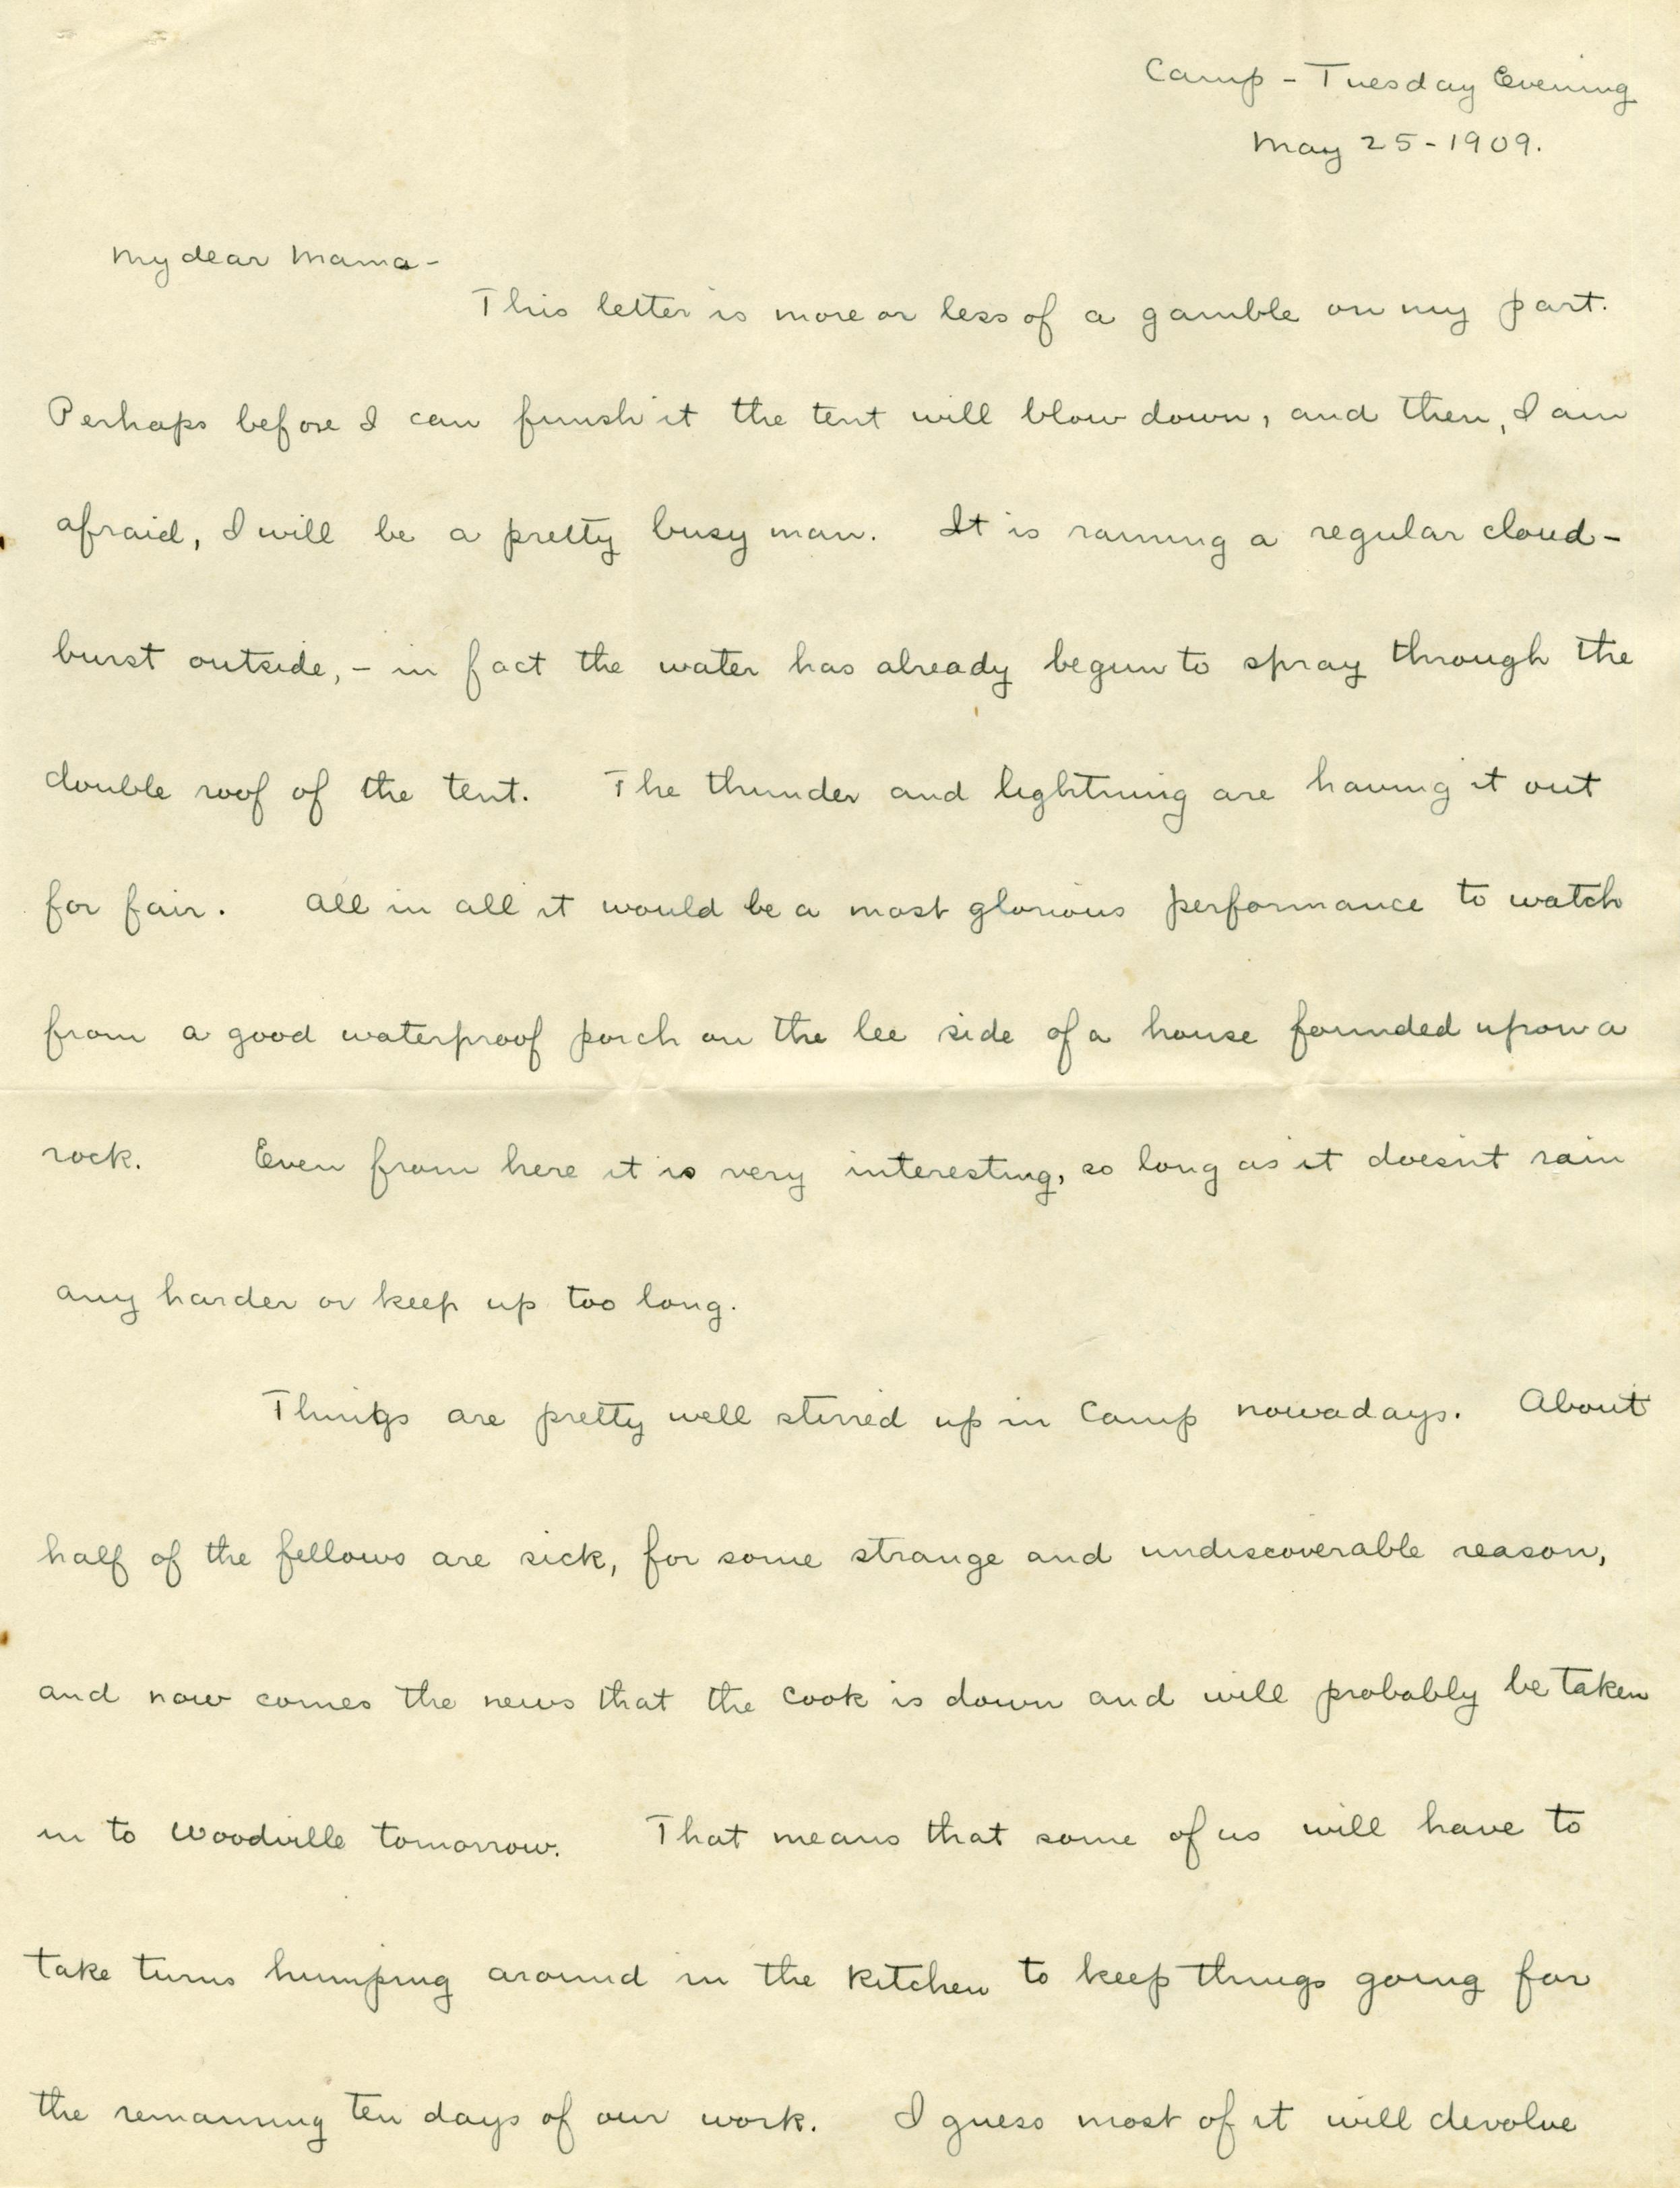 Camp - Tuesday Evening
May 25 - 1909.
My dear Mama -
This letter is more or less of a gamble on my part.
Perhaps before I can finish it the tent will blow down, and then, I am
afraid, I will be a pretty busy man. It is raining a regular cloud-
burst outside, - in fact the water has already begun to spray through the
double roof of the tent. The thunder and lightning are having it out
for fair. All in all it would be a most glorious performance to watch
from a good waterproof porch on the lee side of a house founded upon a
rock. Even from here it is very interesting, so long as it doesn't rain
any harder or keep up too long.
Things are pretty well stirred up in Camp nowadays. About
half of the fellows are sick, for some strange and undiscoverable reason,
and now comes the news that the cook is down and will probably be taken
in to Woodville tomorrow. That means that some of us will have to
take turns humping around in the kitchen to keep things going for
the remaining ten days of our work. I guess most of it will devolve